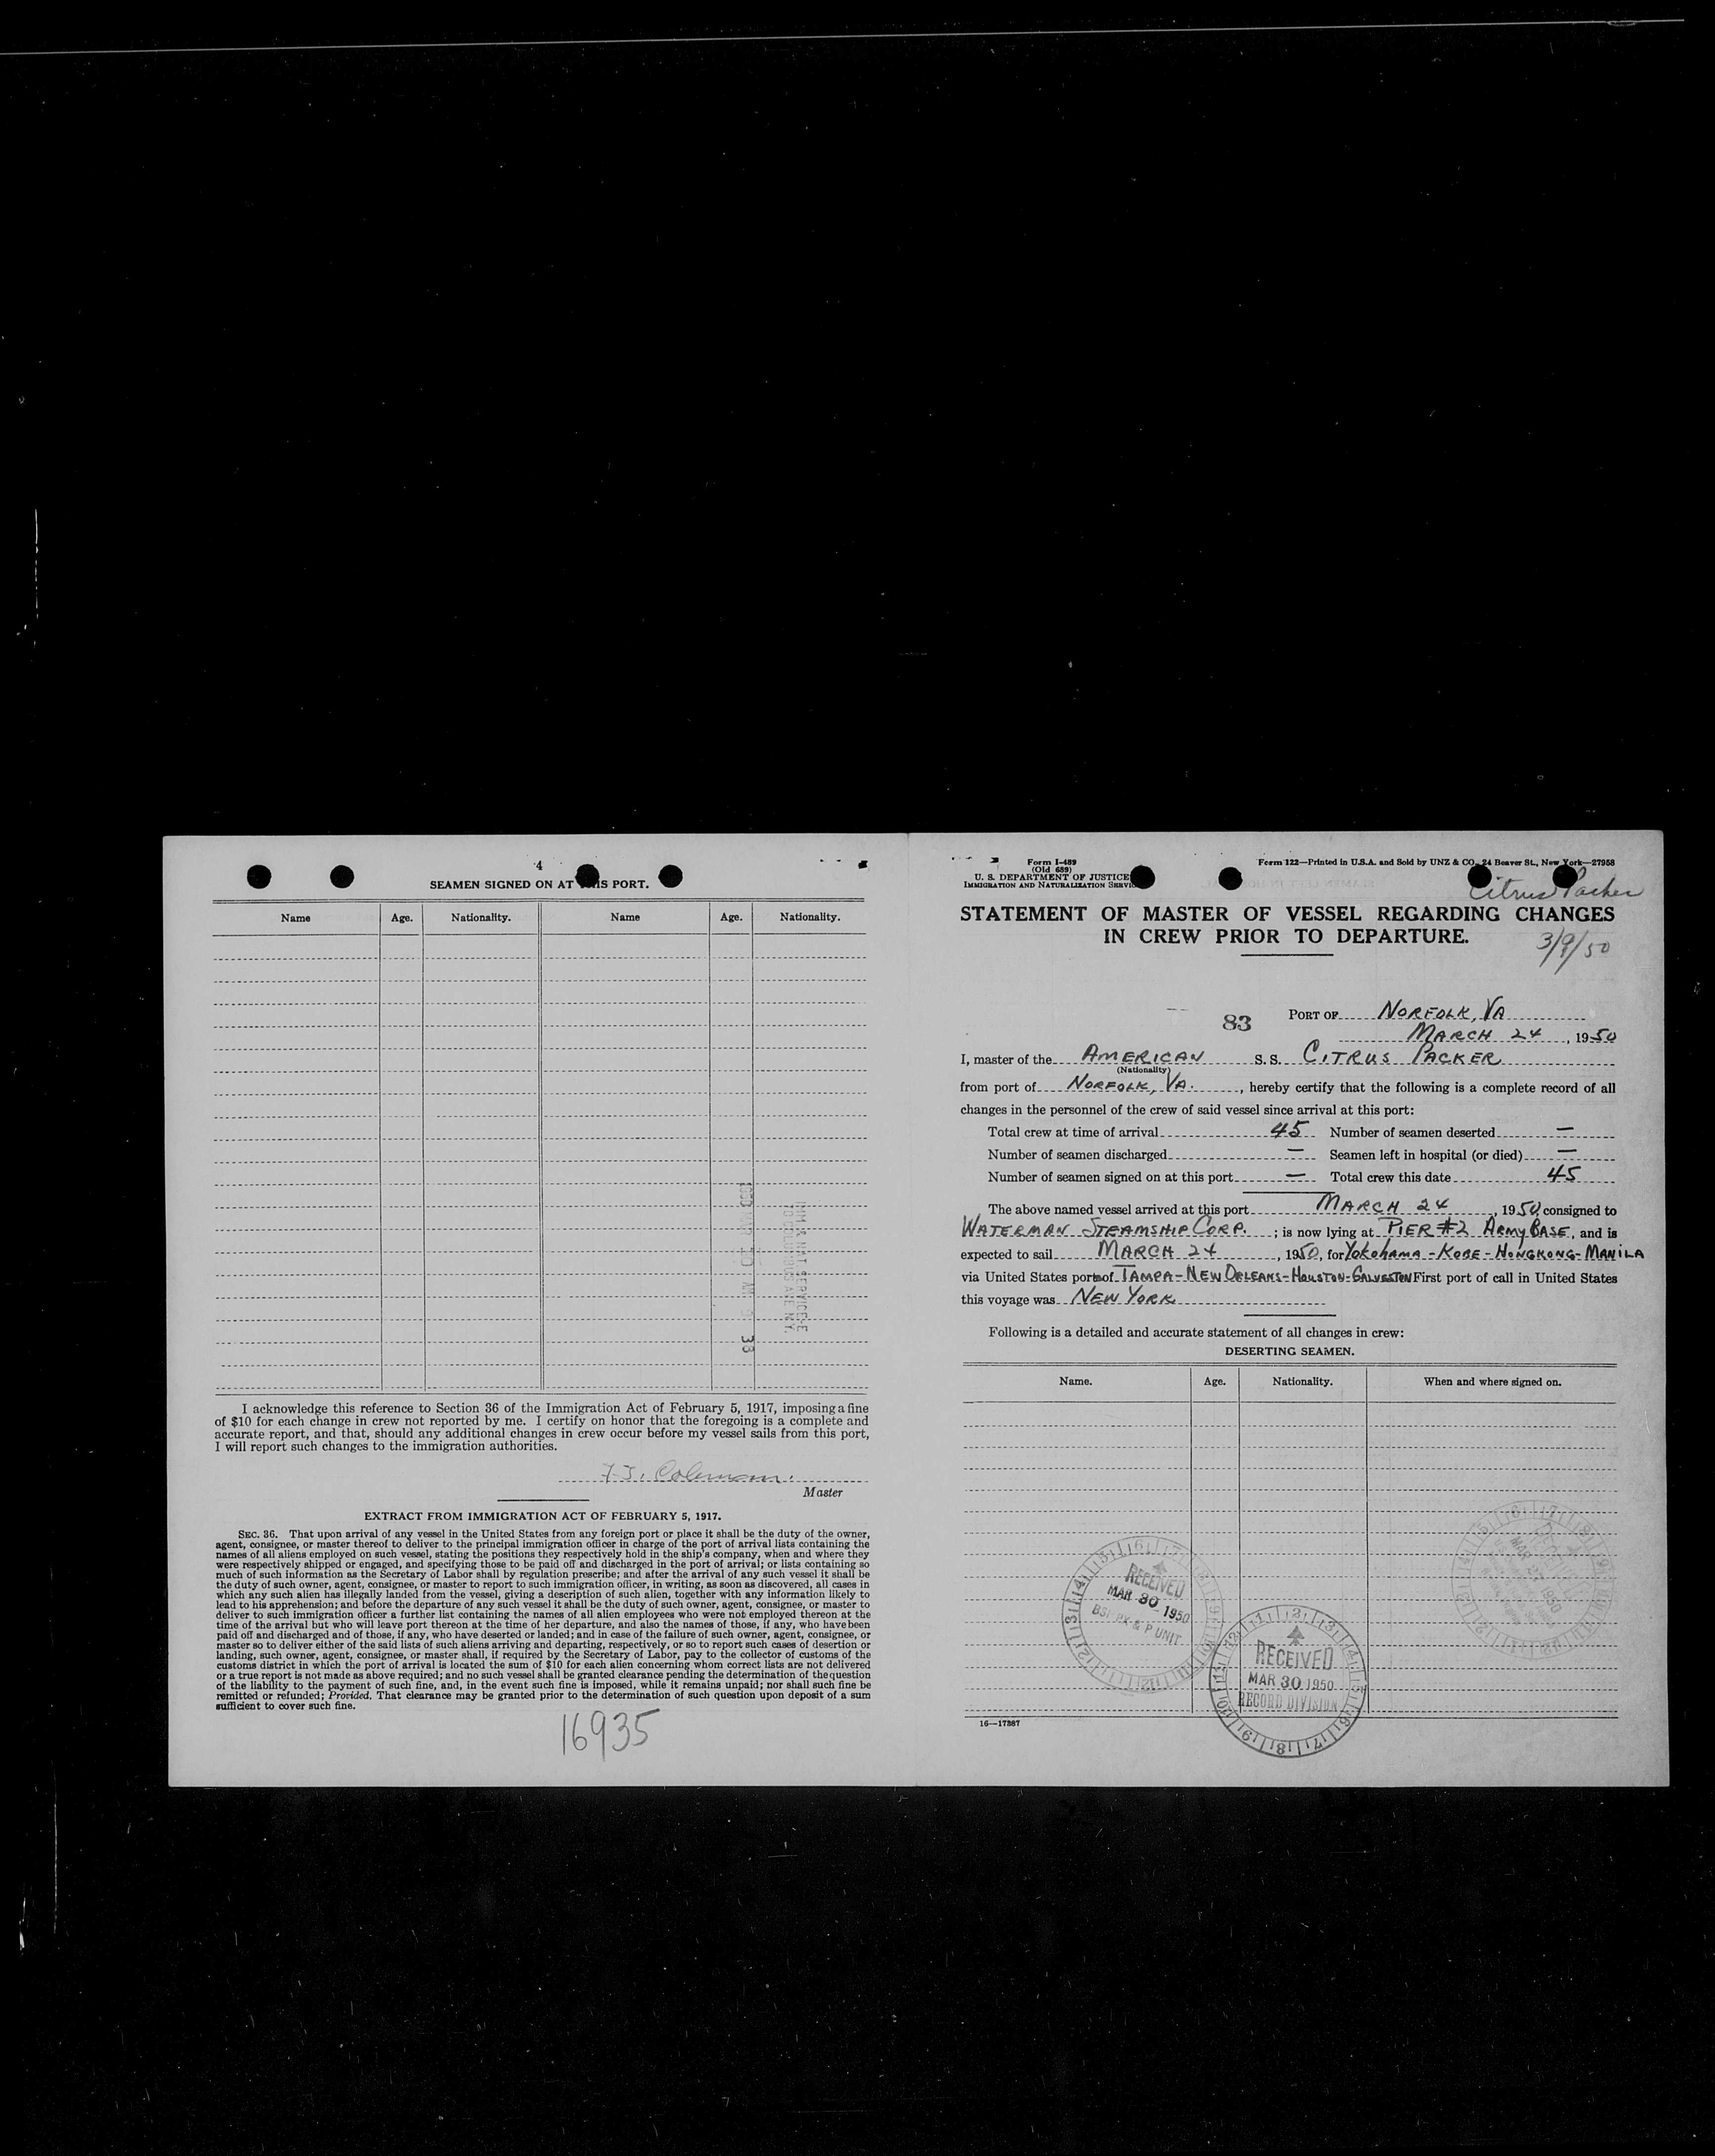 4
SEAMEN SIGNED ON AT THIS PORT.
Name Age. Nationality. Name Age. Nationality.
I acknowledge this reference to Section 36 of the Immigration Act of February 5, 1917, imposing a fine
of $10 for each change in crew not reported by me. I certify on honor that the foregoing is a complete and
accurate report, and that, should any additional changes in crew occur before my vessel sails from this port,
I will report such changes to the immigration authorities.
Coleman.
Master
EXTRACT FROM IMMIGRATION ACT OF FEBRUARY 5, 1917.
SEC. 36. That upon arrival of any vessel in the United States from any foreign port or place it shall be the duty of the owner,
agent, consignee, or master thereof to deliver to the principal immigration officer in charge of the port of arrival lists containing the
names of all aliens employed on such vessel, stating the positions they respectively hold in the ship's company, when and where they
were respectively shipped or engaged, and specifying those to be paid off and discharged in the port of arrival; or lists containing so
much of such information as the Secretary of Labor shall by regulation prescribe; and after the arrival of any such vessel it shall be
the duty of such owner, agent, consignee, or master to report to such immigration officer, in writing, as soon as discovered, all cases in
which any such alien has illegally landed from the vessel, giving a description of such alien, together with any information likely to
lead to his apprehension; and before the departure of any such vessel it shall be the duty of such owner, agent, consignee, or master to
deliver to such immigration officer a further list containing the names of all alien employees who were not employed thereon at the
time of the arrival but who will leave port thereon at the time of her departure, and also the names of those, if any, who have been
paid off and discharged and of those, if any, who have deserted or landed; and in case of the failure of such owner, agent, consignee, or
master so to deliver either of the said lists of such aliens arriving and departing, respectively, or so to report such cases of desertion or
landing, such owner, agent, consignee, or master shall, if required by the Secretary of Labor, pay to the collector of customs of the
customs district in which the port of arrival is located the sum of $10 for each alien concerning whom correct lists are not delivered
or a true report is not made as above required; and no such vessel shall be granted clearance pending the determination of the question
of the liability to the payment of such fine, and, in the event such fine is imposed, while it remains unpaid; nor shall such fine be
remitted or refunded; Provided, That clearance may be granted prior to the determination of such question upon deposit of a sum
sufficient to cover such fine.
16935
Form I-489
(Old 689)
U. S. DEPARTMENT OF JUSTICE
IMMIGRATION AND NATURALIZATION SERVICE
Form 122—Printed in U.S.A. and Sold by UNZ & CO., 24 Beaver St., New York—27958
Citrus Packer
STATEMENT OF MASTER OF VESSEL REGARDING CHANGES
IN CREW PRIOR TO DEPARTURE.
3/9/50
83
PORT OF NORFOLK, VA
MARCH 24, 1950
I, master of the AMERICAN S. S. CITRUS PACKER
(Nationality)
from port of NORFOLK, VA., hereby certify that the following is a complete record of all
changes in the personnel of the crew of said vessel since arrival at this port:
Total crew at time of arrival 45 Number of seamen deserted —
Number of seamen discharged — Seamen left in hospital (or died) —
Number of seamen signed on at this port — Total crew this date 45
The above named vessel arrived at this port MARCH 24, 1950, consigned to
WATERMAN STEAMSHIP CORP.; is now lying at PIER #2 ARMY BASE, and is
expected to sail MARCH 24, 1950, for Yokohama - KOBE - HONGKONG - MANILA
via United States ports of TAMPA - NEW ORLEANS - HOUSTON - GALVESTON First port of call in United States
this voyage was NEW YORK
Following is a detailed and accurate statement of all changes in crew:
DESERTING SEAMEN.
Name. Age. Nationality. When and where signed on.
RECEIVED
MAR 30 1950
P UNIT
RECEIVED
MAR 30 1950
RECORD DIVISION
16—17887